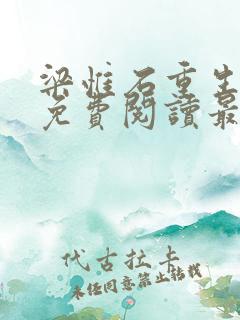 梁惟石重生
免費閱讀最
代古拉卡
未经同意禁止转载